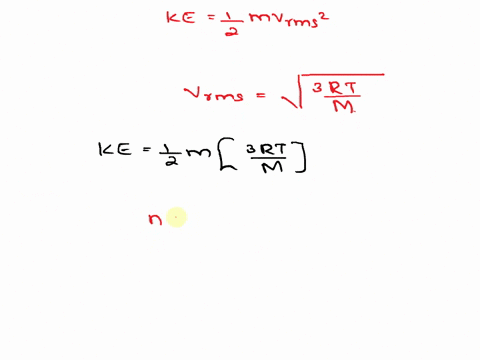 KE = 1/2 m v rms²
v rms = √(3RT/M)
KE = 1/2 m [3RT/M]
n